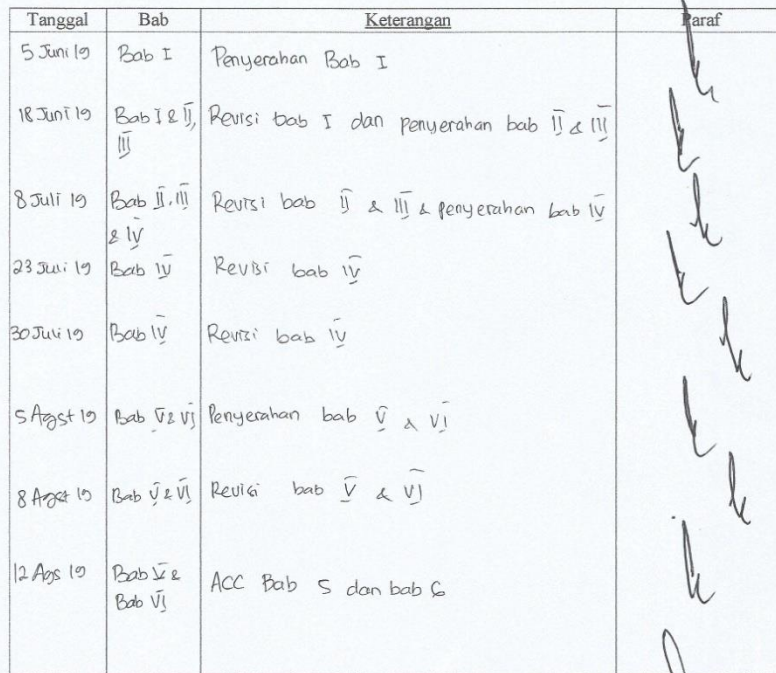 Tanggal Bab Keterangan Paraf
5 Juni 19 Bab I Penyerahan Bab I
18 Juni 19 Bab I & II, Revisi bab I dan penyerahan bab II & III
III
8 Juli 19 Bab II, III Revisi bab II & III & penyerahan bab IV
& IV
23 Juli 19 Bab IV Revisi bab IV
30 Juli 19 Bab IV Revisi bab IV
5 Agst 19 Bab V & VI Penyerahan bab V & VI
8 Agst 19 Bab V & VI Revisi bab V & VI
12 Ags 19 Bab V & ACC Bab 5 dan bab 6
Bab VI